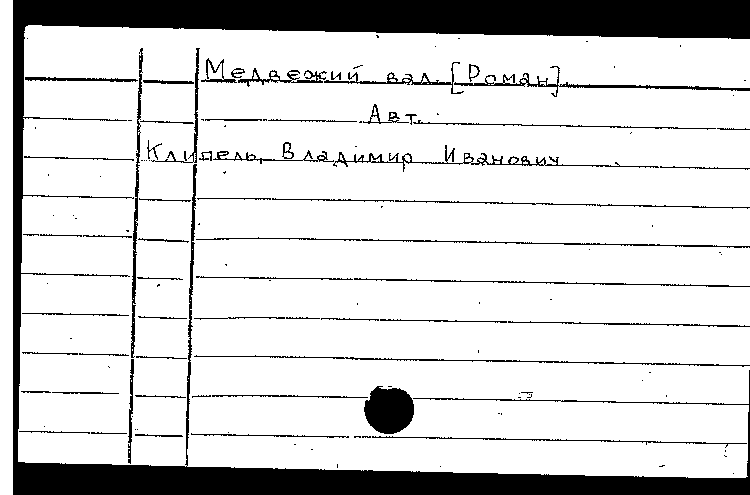 Медвежий вал. [Роман].
Авт.
Клипель, Владимир Иванович